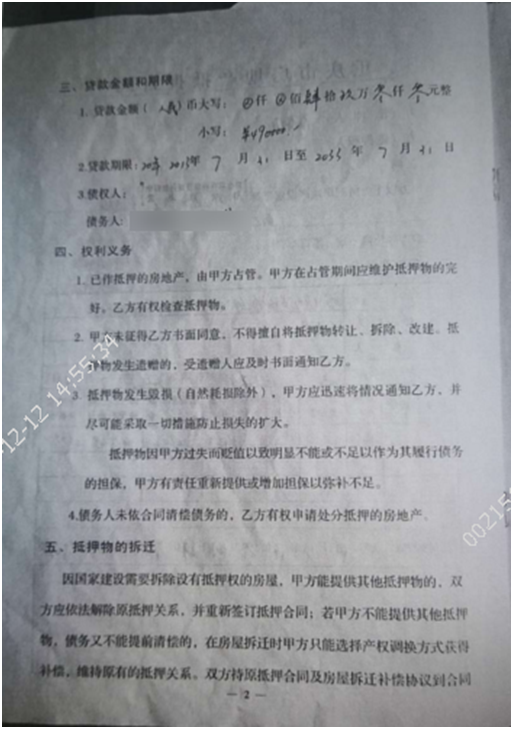 三、贷款金额和期限
1. 贷款金额（人民）币大写：⊗仟⊗佰肆拾玖万零仟零元整
小写：¥490000.-
2.贷款期限：20年 2015年 7 月 21 日至 2035 年 7 月 21 日
3.债权人：
债务人：
四、权利义务
1. 已作抵押的房地产，由甲方占管。甲方在占管期间应维护抵押物的完
好。乙方有权检查抵押物。
2. 甲方未征得乙方书面同意，不得擅自将抵押物转让、拆除、改建。抵
押物发生遗赠的，受遗赠人应及时书面通知乙方。
3. 抵押物发生毁损（自然耗损除外），甲方应迅速将情况通知乙方，并
尽可能采取一切措施防止损失的扩大。
抵押物因甲方过失而贬值以致明显不能或不足以作为其履行债务
的担保，甲方有责任重新提供或增加担保以弥补不足。
4.债务人未依合同清偿债务的，乙方有权申请处分抵押的房地产。
五、抵押物的拆迁
因国家建设需要拆除设有抵押权的房屋，甲方能提供其他抵押物的，双
方应依法解除原抵押关系，并重新签订抵押合同；若甲方不能提供其他抵押
物，债务又不能提前清偿的，在房屋拆迁时甲方只能选择产权调换方式获得
补偿，维持原有的抵押关系。双方持原抵押合同及房屋拆迁补偿协议到合同
— 2 —
12-12 14:55:34
00215